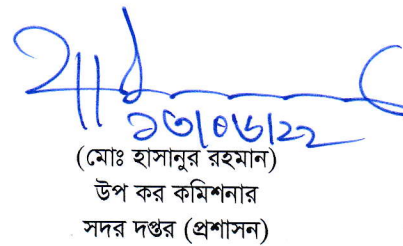 ১৩/০৬/২২
(মোঃ হাসানুর রহমান)
উপ কর কমিশনার
সদর দপ্তর (প্রশাসন)